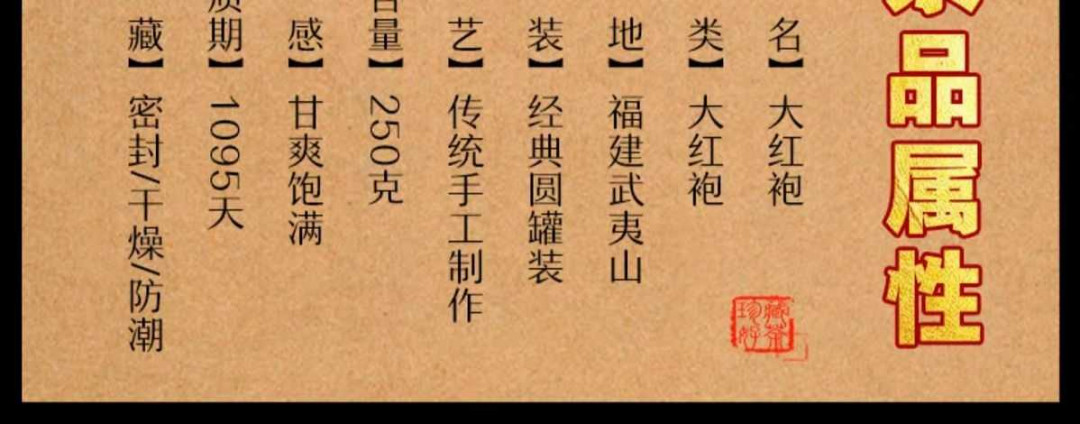 品属性
名】大红袍
类】大红袍
地】福建武夷山
装】经典圆罐装
艺】传统手工制作
量】250克
感】甘爽饱满
期】1095天
藏】密封/干燥/防潮